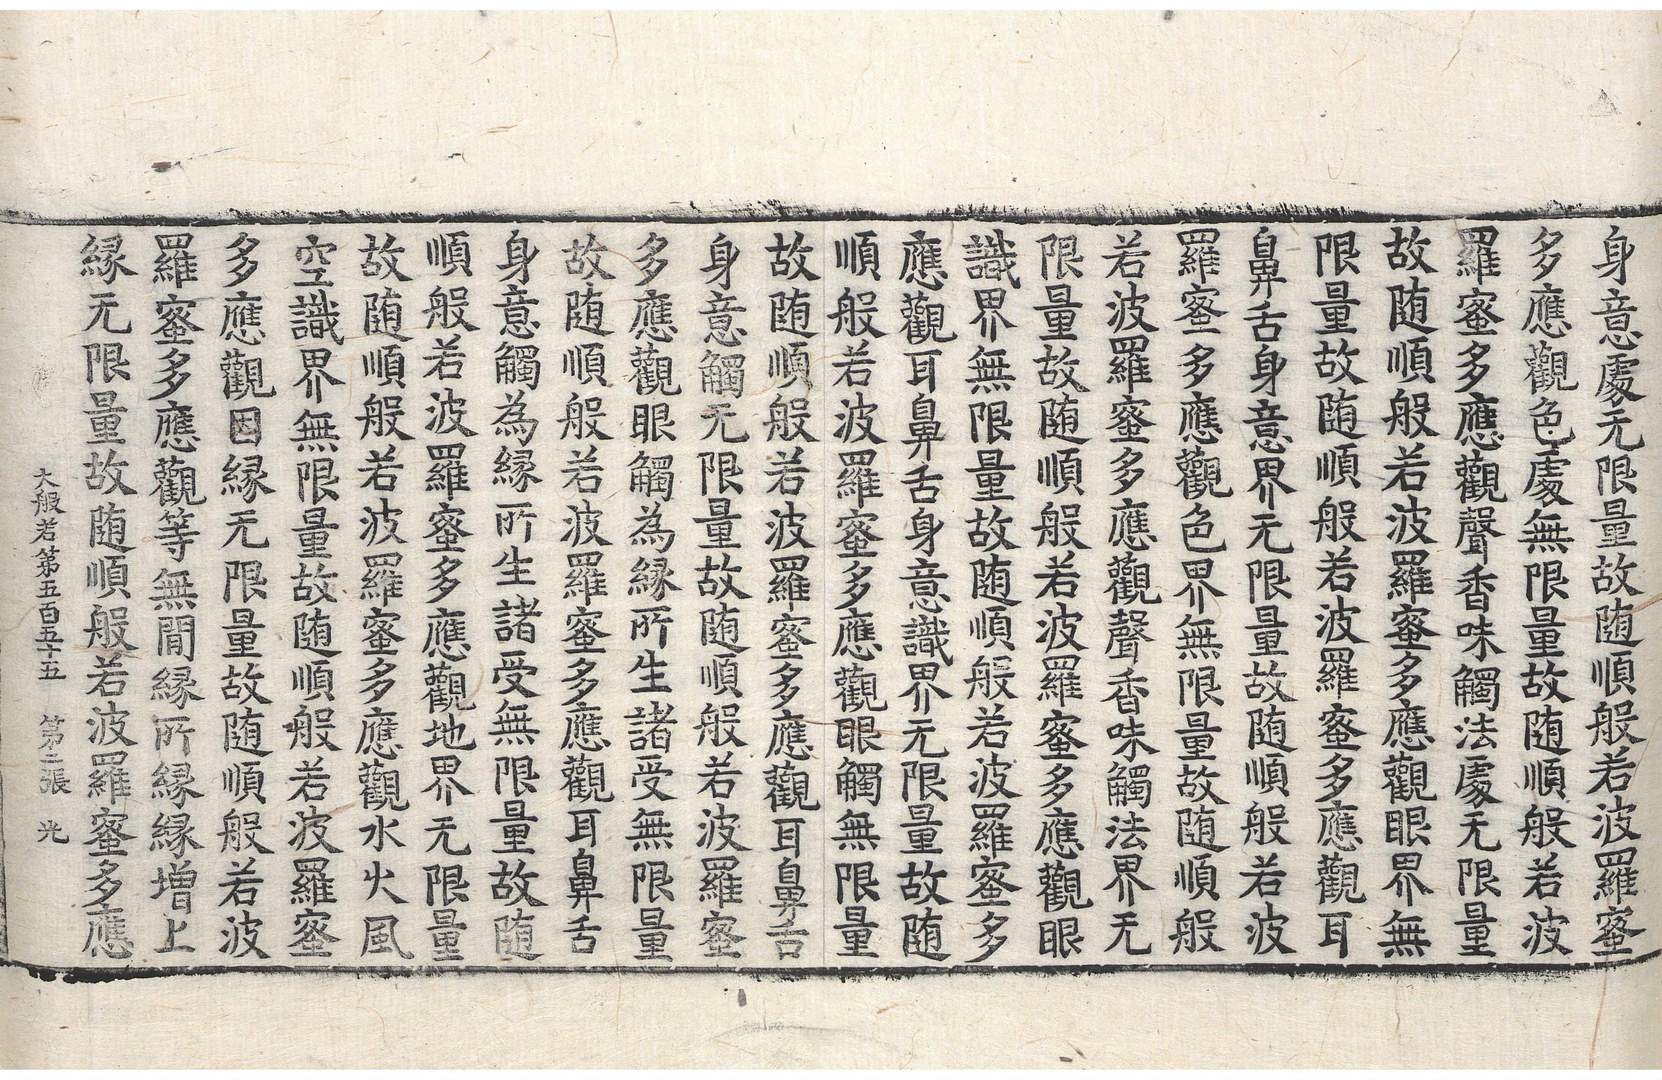 身意處无限量故随順般若波羅蜜
多應觀色處無限量故随順般若波
羅蜜多應觀聲香味觸法處无限量
故随順般若波羅蜜多應觀眼界無
限量故随順般若波羅蜜多應觀耳
鼻舌身意界无限量故随順般若波
羅蜜多應觀色界無限量故随順般
若波羅蜜多應觀聲香味觸法界无
限量故随順般若波羅蜜多應觀眼
識界無限量故随順般若波羅蜜多
應觀耳鼻舌身意識界无限量故随
順般若波羅蜜多應觀眼觸無限量
故随順般若波羅蜜多應觀耳鼻舌
身意觸无限量故随順般若波羅蜜
多應觀眼觸為縁所生諸受無限量
故随順般若波羅蜜多應觀耳鼻舌
身意觸為縁所生諸受無限量故随
順般若波羅蜜多應觀地界无限量
故随順般若波羅蜜多應觀水火風
空識界無限量故随順般若波羅蜜
多應觀因縁无限量故随順般若波
羅蜜多應觀等無間縁所縁縁增上
縁无限量故随順般若波羅蜜多應
大般若第五百五十五 第二張 光